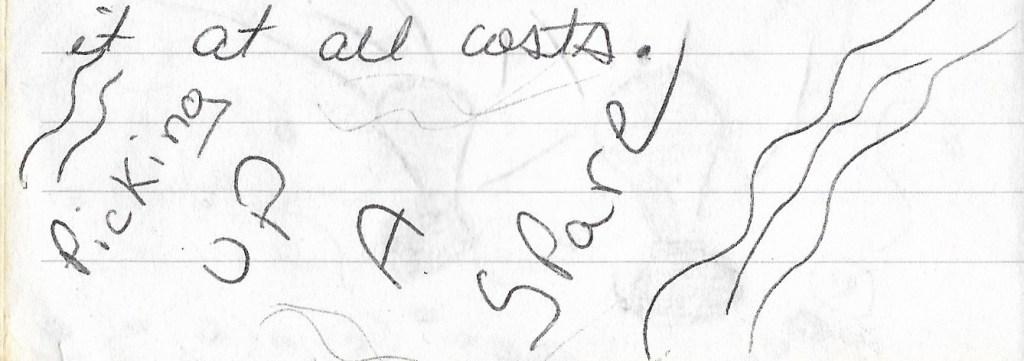 it at all costs.
Picking
UP
A
Spare